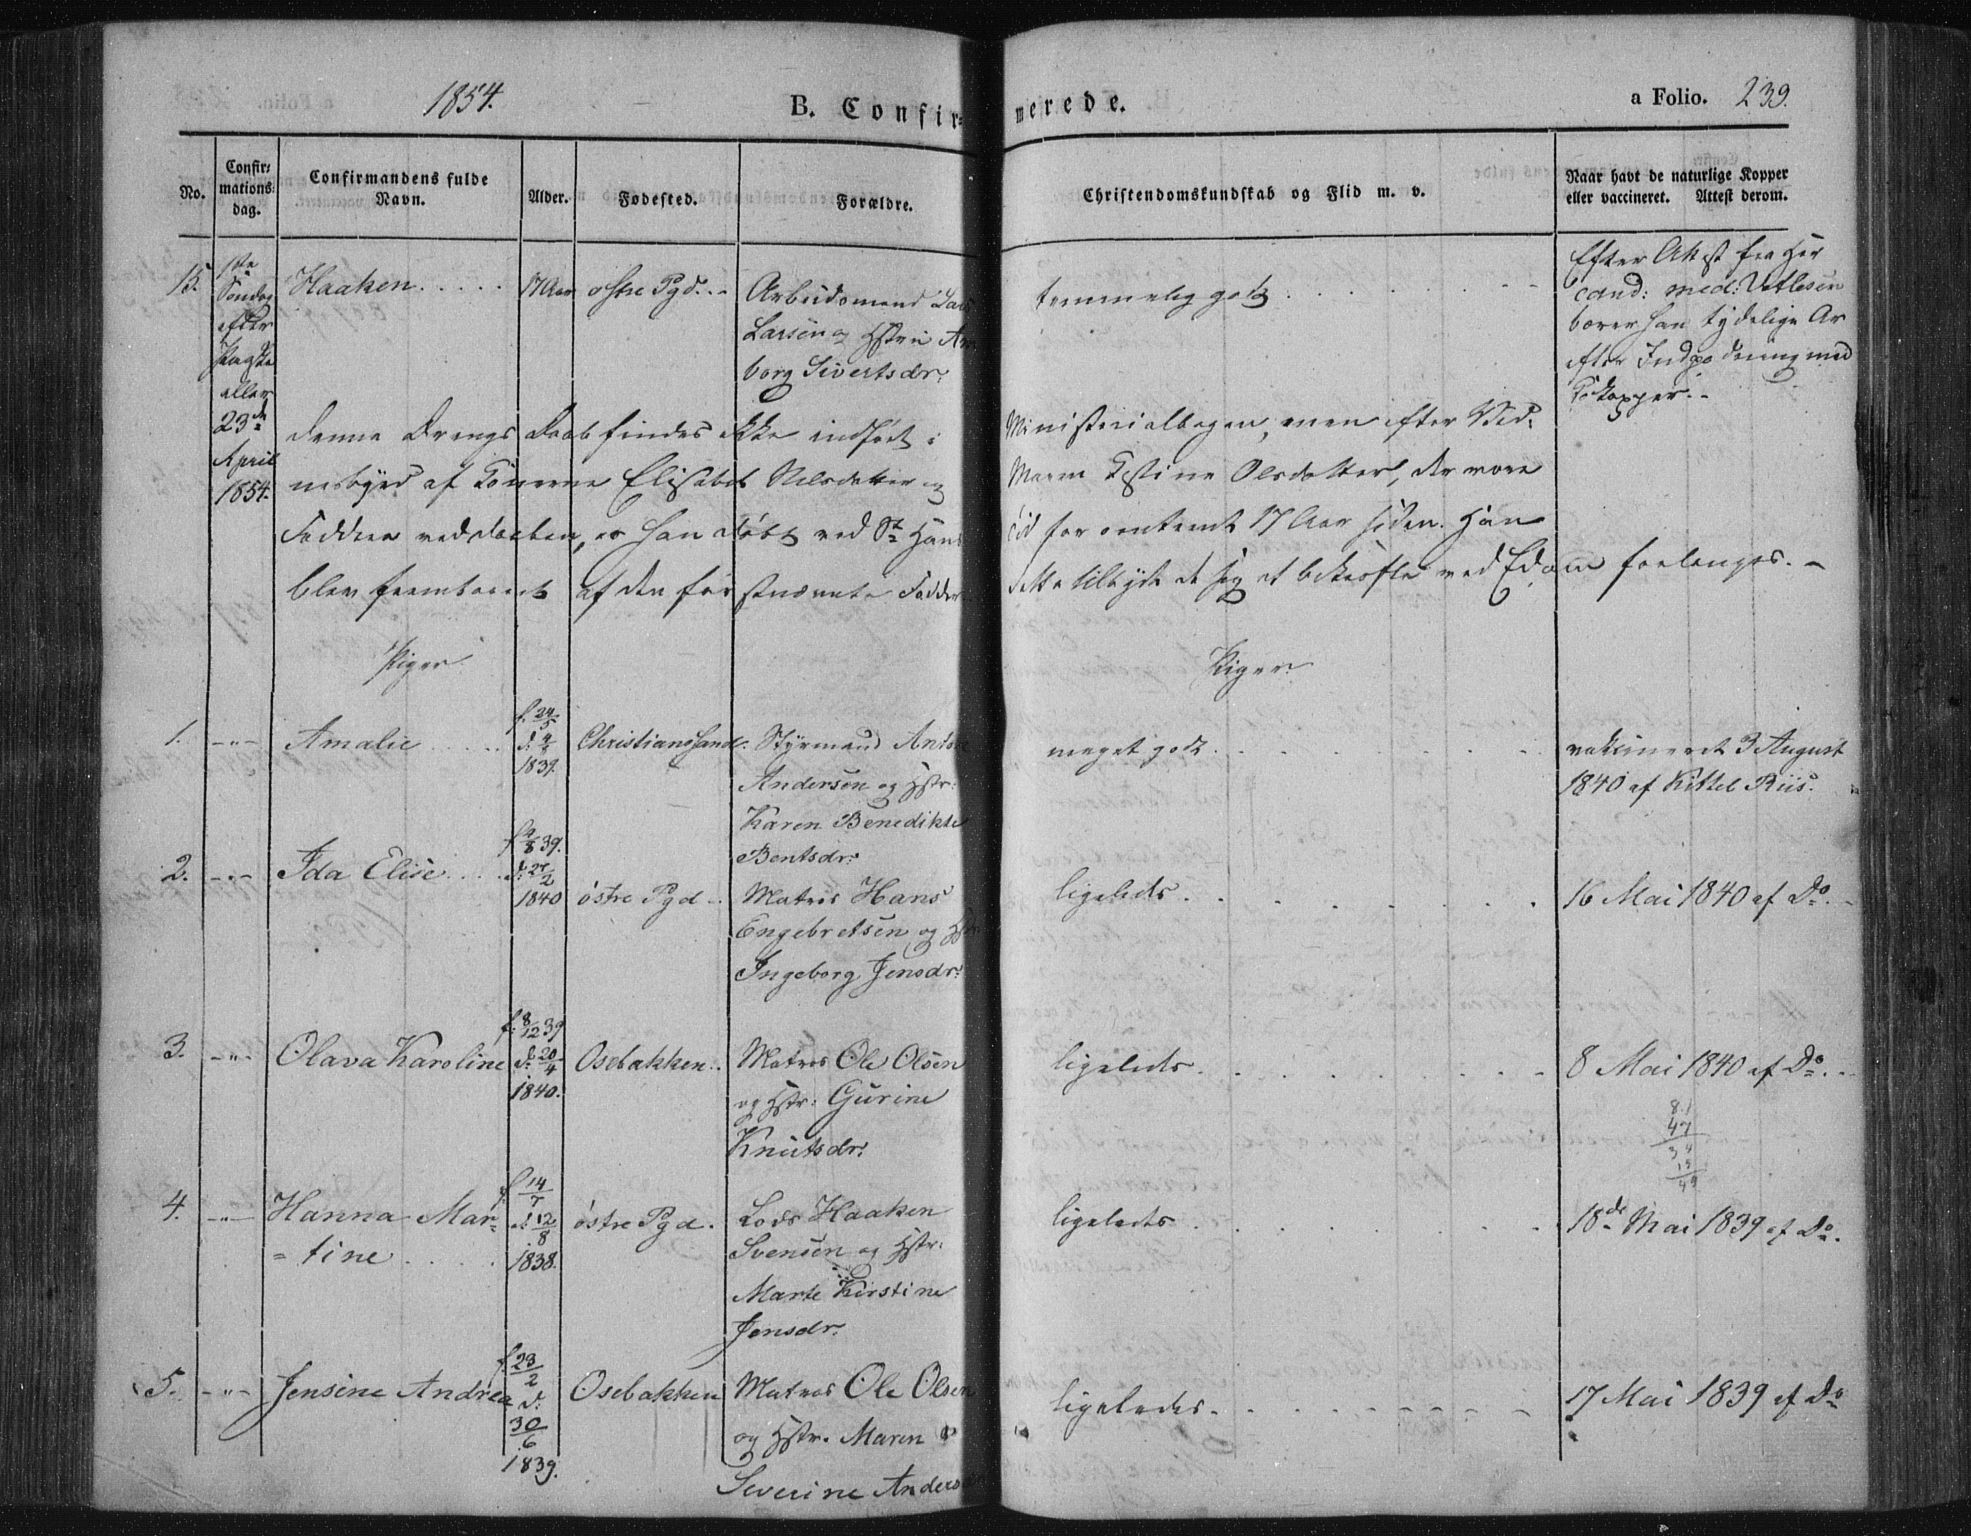 1854.
B. Confir=
merede.
a Folio. 239.
No.
Confir=
mations=
dag.
Confirmandens fulde
Navn.
Alder.
Fødested.
Forældre.
Christendomskundskab og Flid m. v.
Naar havt de naturlige Kopper
eller vaccineret. Attest derom.
15.
1ste
Søndag
efter
Paaske
eller
23de
April
1854.
Haaken.....
17 Aar
østre Pgd..-
Arbeidsmand
Larsen og Hstru
borg Sivertsdr:
temmelig godt
Efter Attest fra Her
cand: med: Detlefsen
bærer han tydelige Ar
efter Indpodning med
Kokopper.-
denne Drengs Daab findes ikke indført i
Ministerialbogen, men efter Vid=
nesbyrd af Konerne Elisabet Nilsdatter og
Maren Kistine Olsdatter, der vare
Faddere ved Daaben, er han døbt ved St Hans
tid for omtrent 17 Aar siden. Han
blev frembaaret af den førstnævnte Fadder
dette tilbyde de sig at bekræfte ved Ed om forlanges.-
Piger
Piger
1.
-"-
Amalie.....
f. 24/5
d:
1839.
Christianssand.
Styrmand Anton
Andersen og Hstr:
Karen Benedikte
Bentsdr:
meget godt.
vaksineret 3 August
1840 af Kittel Riis.
2.
-"-
Ida Elise....
39.
d: 27/2
1840
østre Pgd-.
Matros Hans
Engebretsen og
Ingeborg Jensdr:
ligeleds.
16 Mai 1840 af Do.-
3.
-"-
Olava Karoline
f: 8/12 39
d: 20/4
1840.
Osebakken..
Matros Ole Olsen
og Hstr: Gurine
Knutsdr:
ligeleds.
8 Mai 1840 af Do..-
4.
-"-
Hanna Mar=
=tine.....
f: 14/7
d: 12/8
1838.
østre Pgd.
Lods Haaken
Svensen og Hstr:
Marte Kirstine
Jensdr:
ligeleds
18de Mai 1839 af Do.
5.
-"-
Jensine Andrea
f: 23/2
d:
30/6
1839.
Osebakken
Matros Ole Olsen
og Hstr. Maren
Severine Anders
ligeledes.
17 Mai 1839 af Do